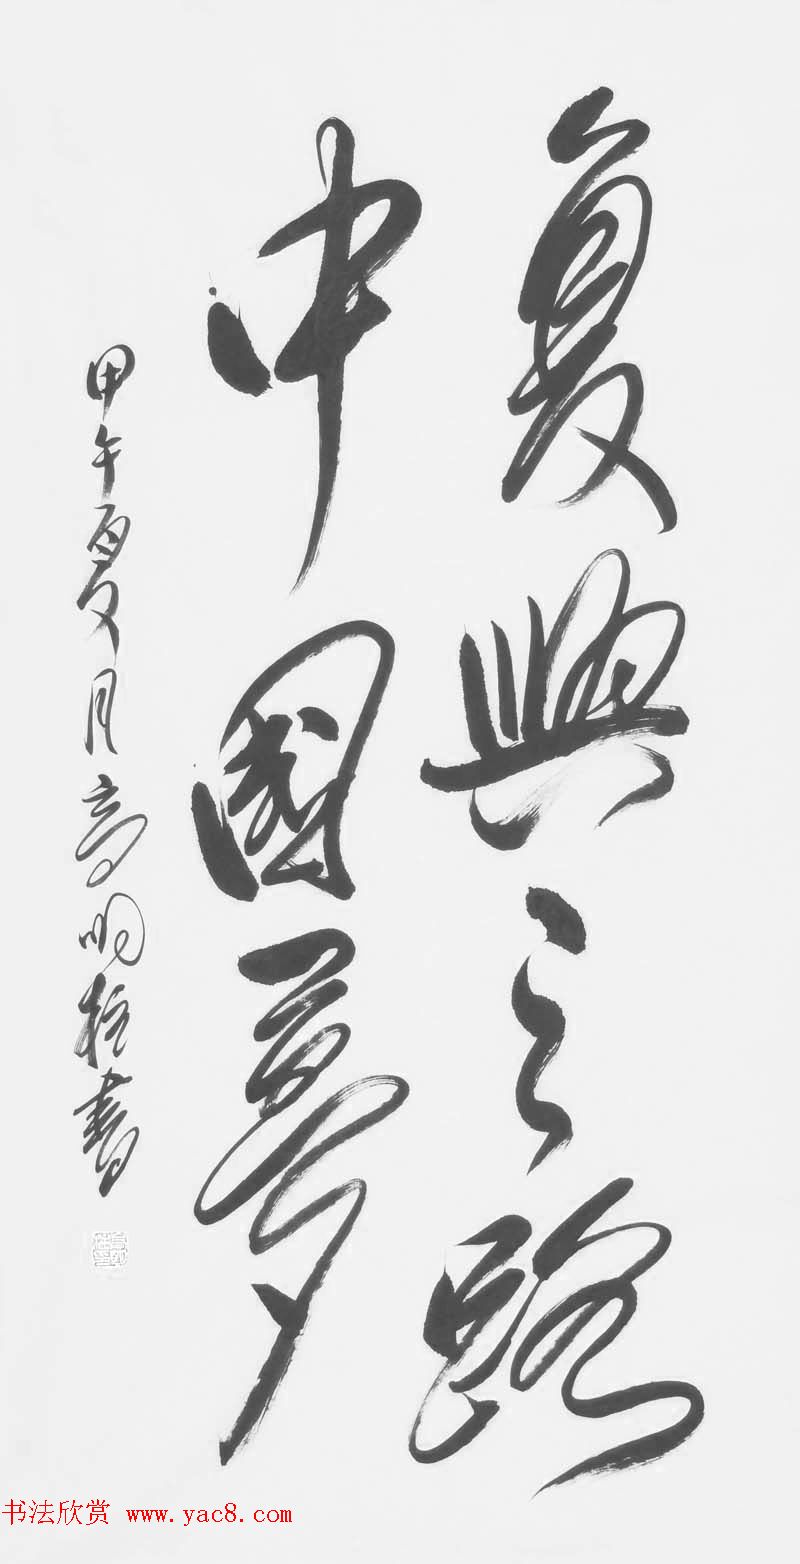 复興之路
中國夢
甲午夏月高明柱書
书法欣赏 www.yac8.com